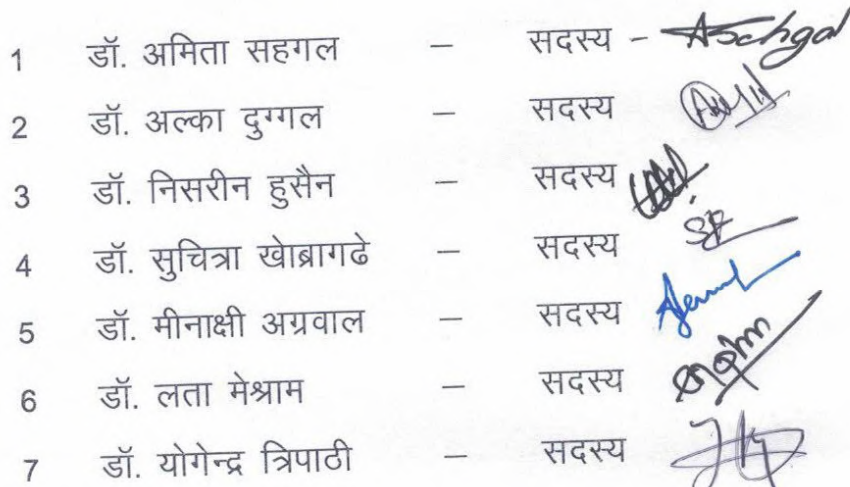 1 डॉ. अमिता सहगल – सदस्य - ASehgal
2 डॉ. अल्का दुग्गल – सदस्य
3 डॉ. निसरीन हुसैन – सदस्य
4 डॉ. सुचित्रा खोब्रागढे – सदस्य
5 डॉ. मीनाक्षी अग्रवाल – सदस्य
6 डॉ. लता मेश्राम – सदस्य
7 डॉ. योगेन्द्र त्रिपाठी – सदस्य